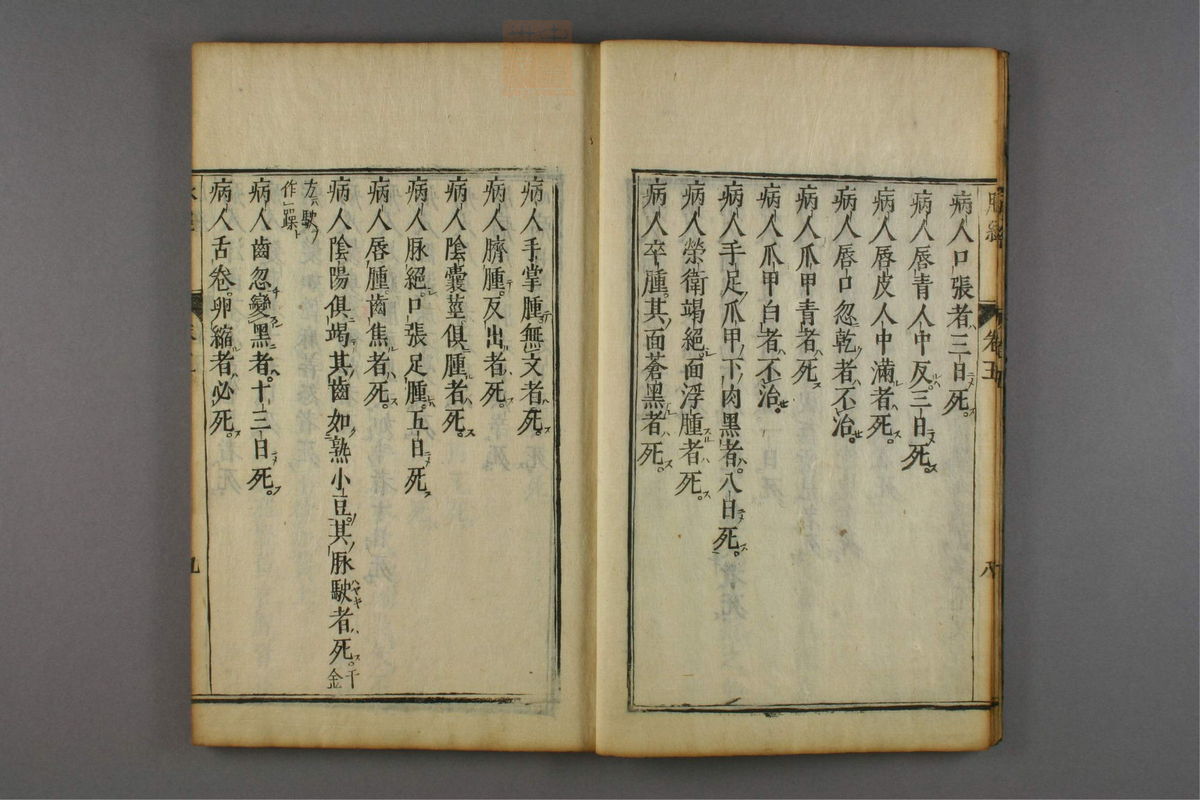 脉經 卷五 八
病人口張者三日死。
病人唇青人中反。三日死。
病人唇皮人中滿者死。
病人唇口忽乾者不治。
病人爪甲青者死
病人爪甲白者不治。
病人手足爪甲下肉黑者。八日死。
病人榮衛竭絕。面浮腫者死。
病人卒腫。其面蒼黑者死。
病人手掌腫無文者死。
病人臍腫。反出者死。
病人陰囊莖俱腫者死。
病人脉絕。口張足腫。五日死
病人唇腫。齒焦者死。
病人陰陽俱竭。其齒如熟小豆。其脉駛者死。千金
方駛作躁
病人齒忽變黑者。十三日死。
病人舌卷。卵縮者必死。
九